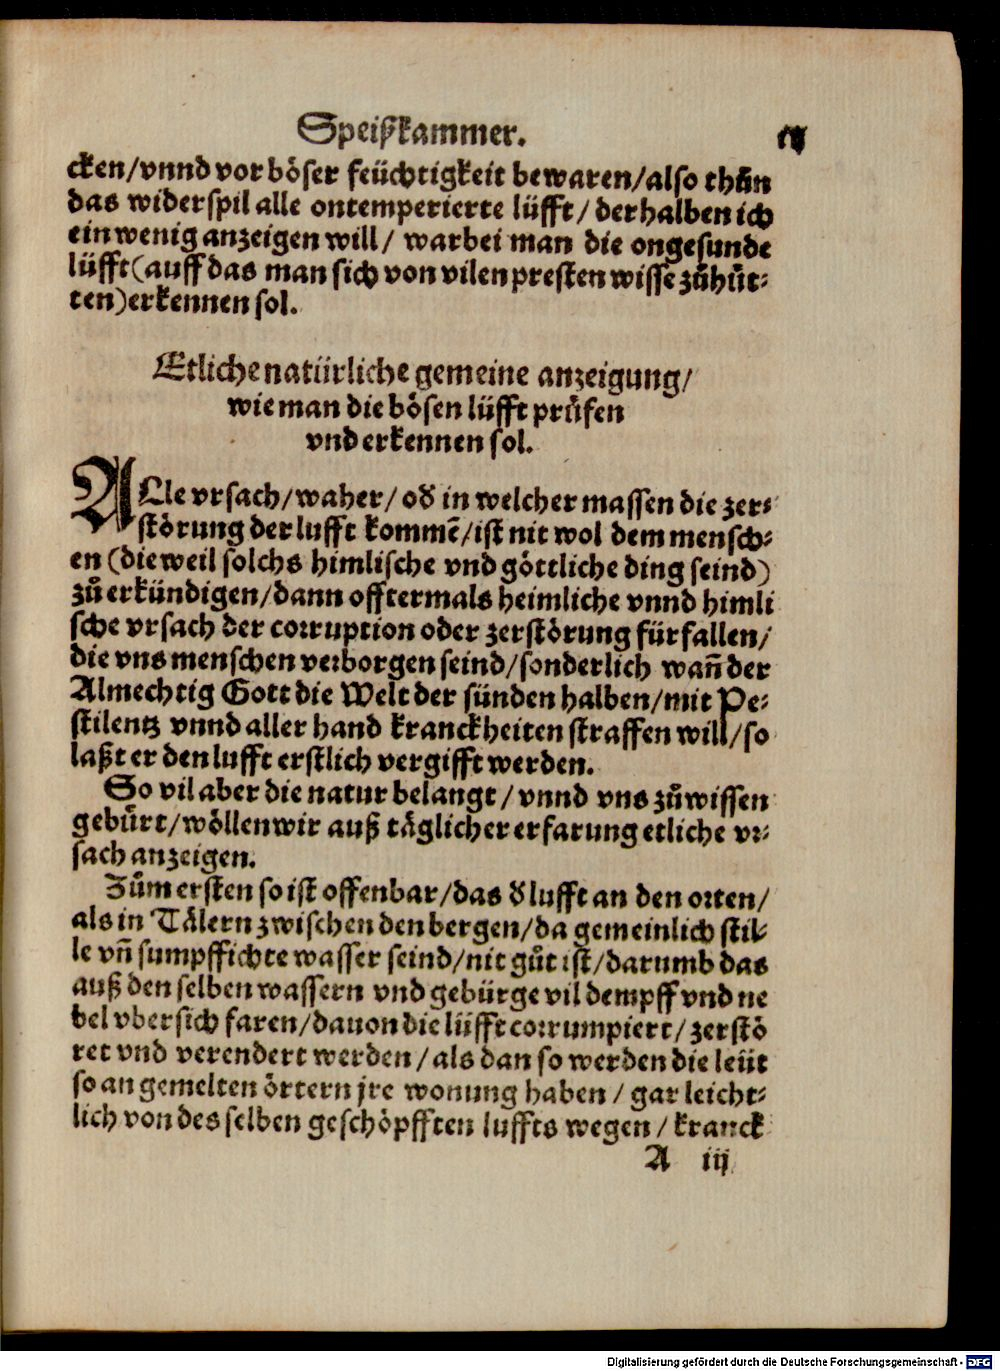 Speißkammer.
cken/vnnd vor böser feüchtigkeit bewaren/also thůn
das widerspil alle ontemperierte lüfft/ derhalben ich
ein wenig anzeigen will/ warbei man die ongesunde
lüfft(auff das man sich von vilen presten wisse zůhůt-
ten)erkennen sol.
Etliche natürliche gemeine anzeigung/
wie man die bösen lüfft průfen
vnd erkennen sol.
ALle vrsach/waher/ oď in welcher massen die zer-
störung der lufft kommē/ist nit wol dem mensch-
en (dieweil solchs himlische vnd göttliche ding seind)
zů erkündigen/dann offtermals heimliche vnnd himli
sche vrsach der corruption oder zerstörung fürfallen/
die vns menschen verborgen seind/sonderlich wañ der
Almechtig Gott die Welt der sünden halben/mit Pe-
stilentz vnnd aller hand kranckheiten straffen will/so
laßt er den lufft erstlich vergifft werden.
So vil aber die natur belangt/vnnd vns zůwissen
gebůrt/wöllen wir auß täglicher erfarung etliche vr-
sach anzeigen.
Zům ersten so ist offenbar/das ď lufft an den orten/
als in Tälern zwischen den bergen/da gemeinlich stil-
le vñ sumpffichte wasser seind/nit gůt ist/darumb das
auß den selben wassern vnd gebürge vil dempff vnd ne
bel vbersich faren/dauon die lüfft corrumpiert/zerstö
ret vnd verendert werden/als dan so werden die leüt
so an gemelten örtern jre wonung haben/ gar leicht-
lich von des selben geschöpfften luffts wegen/kranck
A iij
Digitalisierung gefördert durch die Deutsche Forschungsgemeinschaft - DFG